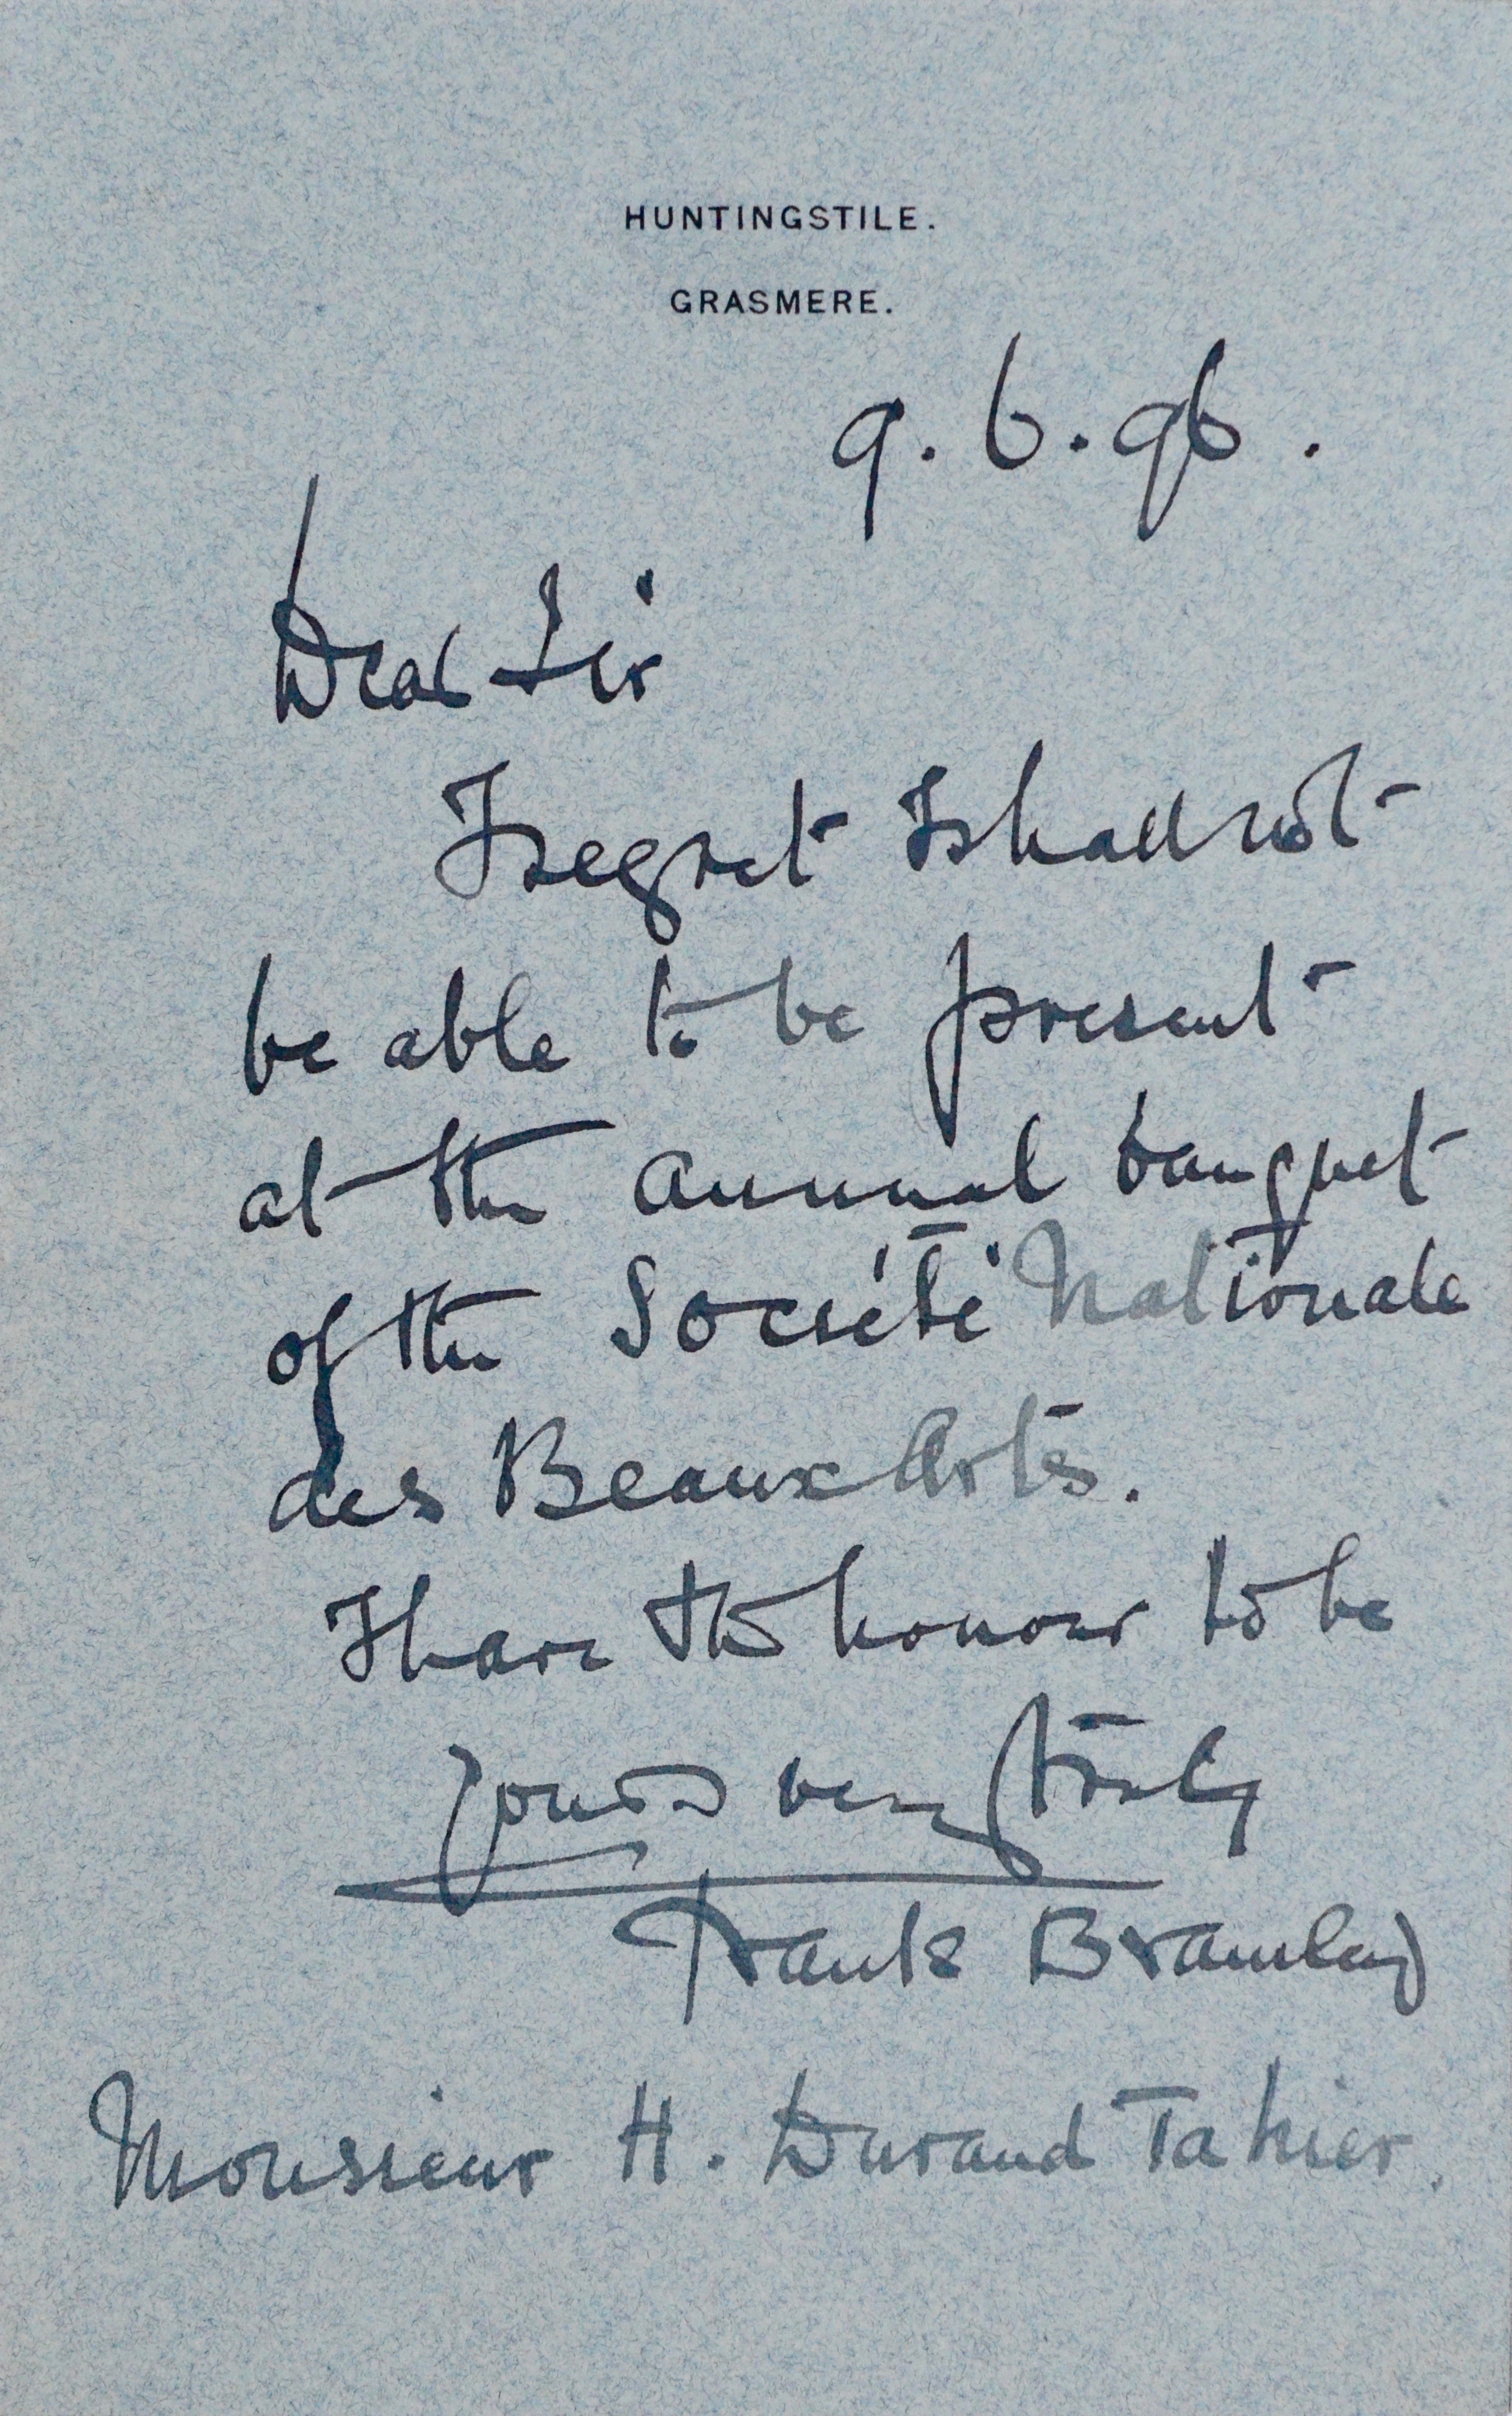 HUNTINGSTILE.
GRASMERE.
9.6.96.
Dear Sir
I regret I shall not
be able to be present
at the annual banquet
of the Société Nationale
des Beaux Arts.
I have the honour to be
Yours very truly
Frank Bramley
Monsieur H. Durand Tahier.